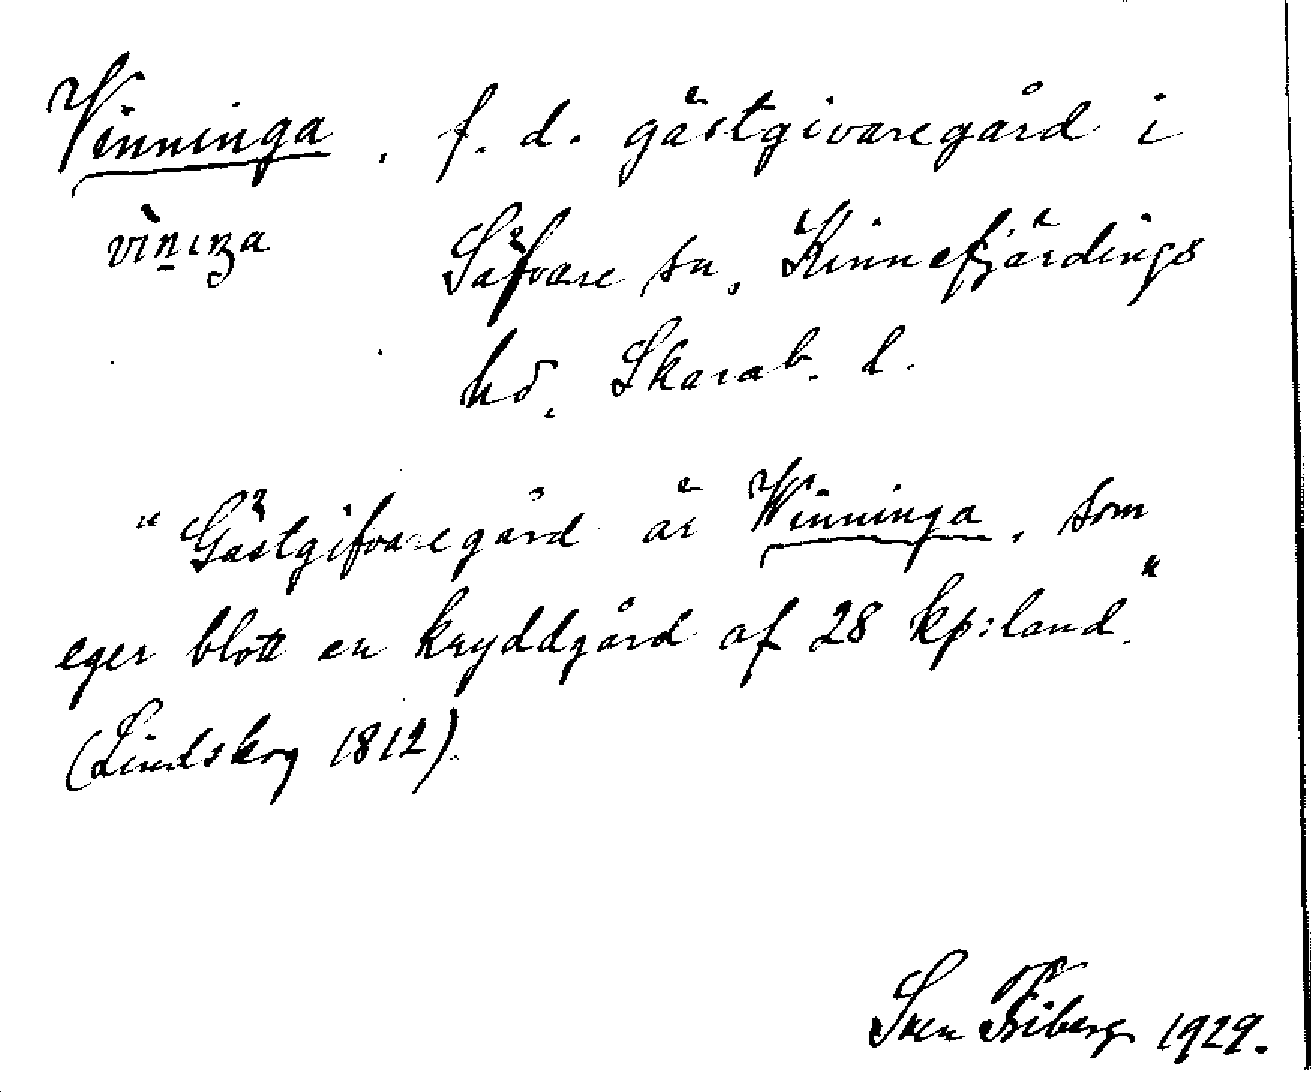 Vinninga, f. d. gästgivaregård i
Säfvare sn, Kinnefjärdings
hd, Skarab. l.
"Gästgifvaregård är Winninga, som
eger blott en kryddgård af 28 kp:land."
(Lindskog 1812).
Sven Friberg 1929.